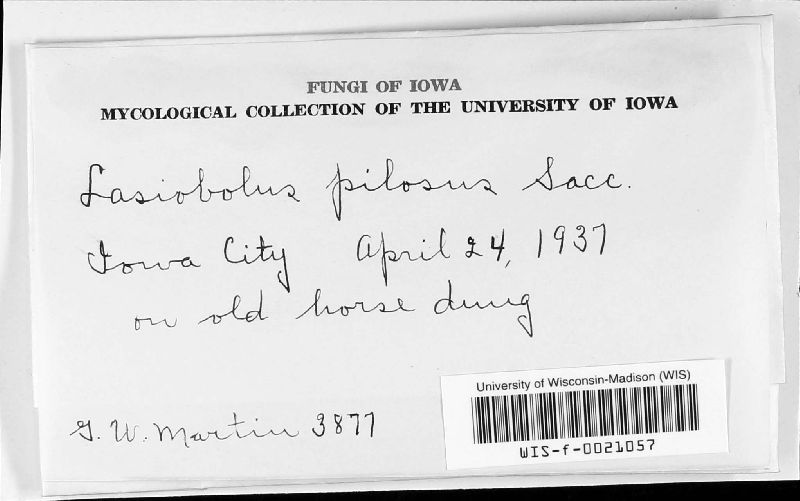 FUNGI OF IOWA
MYCOLOGICAL COLLECTION OF THE UNIVERSITY OF IOWA
Lasiobolus pilosus Sacc.
Iowa City April 24, 1937
on old horse dung
G. W. Martin 3877
University of Wisconsin-Madison (WIS)
WIS-f-0021057